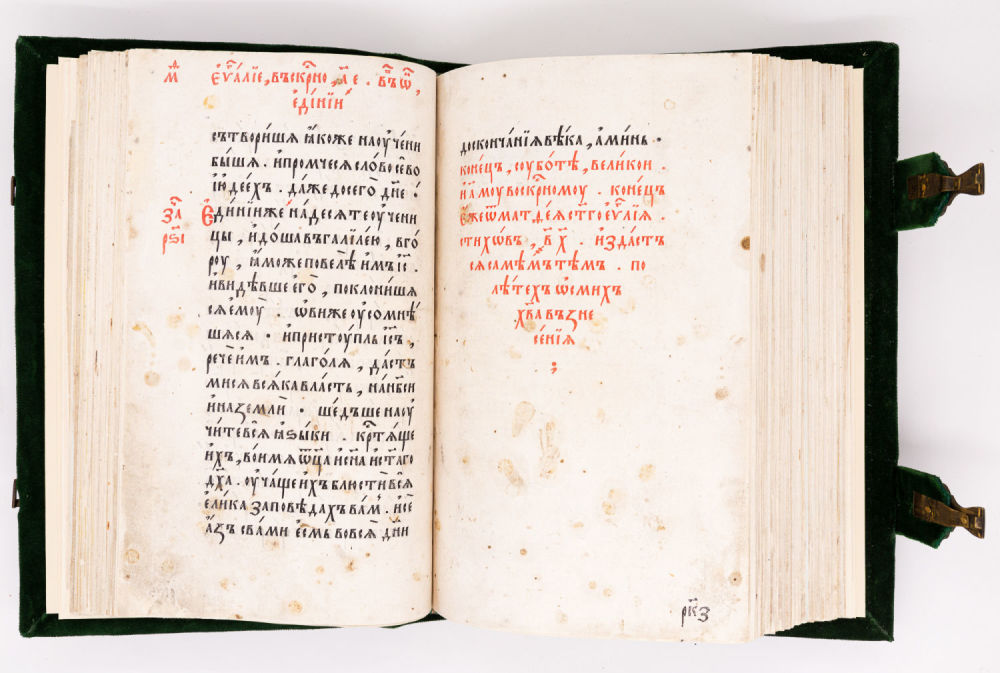 м҃ еѵ҃аліе, въскр҃но, а҃ е. въѿ
едініи
сътвориша ꙗкоже наоучени
быша. ипромчеся слово се во
іюдеехъ. даже досего дн҃е:
за҃ Единіиже надесяте оучени
рѕ҃і цы, идоша въгалілею, вго
роу, ꙗможе повелѣ имъ іс҃.
ивидѣвше его, поклонишя
ся емоу. ѡвиже оусомнѣ
шяся. ипристоупль іс҃ъ,
рече имъ. глаголя, дасть
мися всяка власть, нанб҃си
иназемли. шедъше наоу
чите вся ꙗзыки. крт҃яще
ихъ, воимя ѿц҃а ис҃на ист҃аго
дх҃а. оучаще ихъ блюсти вся
елика заповедахъ вам. исе
азъ свами есмь вовся дн҃и
доскончаніа вѣка, аминь.
конецъ, соуботѣ, великои.
иꙗмоу воскр҃номоу. конецъ
Еже ѿматдея ст҃го еѵ҃лія.
стихѡвъ, в҃ х҃. издасть
ся самѣмъ тѣмъ. по
лѣтехъ ѡсмихъ
хв҃а възне
сенія
;
рк҃з